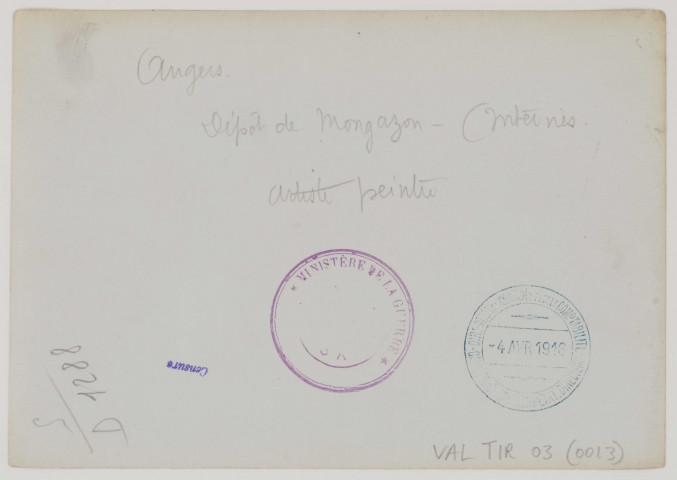 Angers.
Dépôt de Mongazon - Internés.
artiste peintre
* MINISTÈRE DE LA GUERRE *
COMPTABILITÉ
-4 AVR 1918
Censure
D 1288
5
VAL TIR 03 (0013)